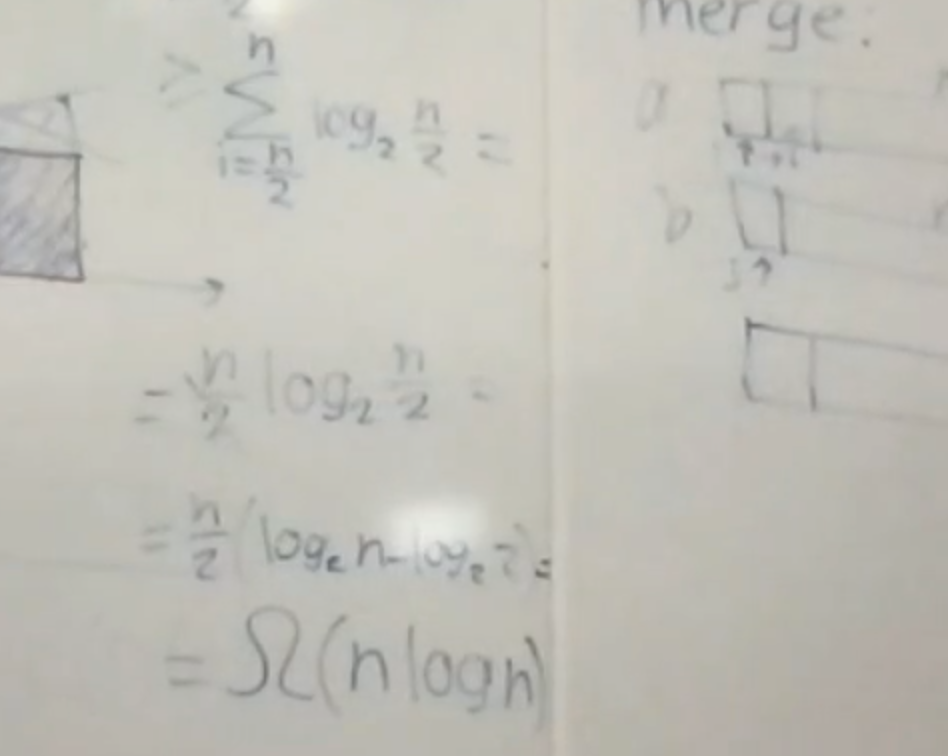 ≥ ∑_{i=n/2}^{n} log₂ n/2 =
= n/2 log₂ n/2 =
= n/2 (log₂ n - log₂ 2) =
= Ω(n log n)
merge:
a
b
j↑